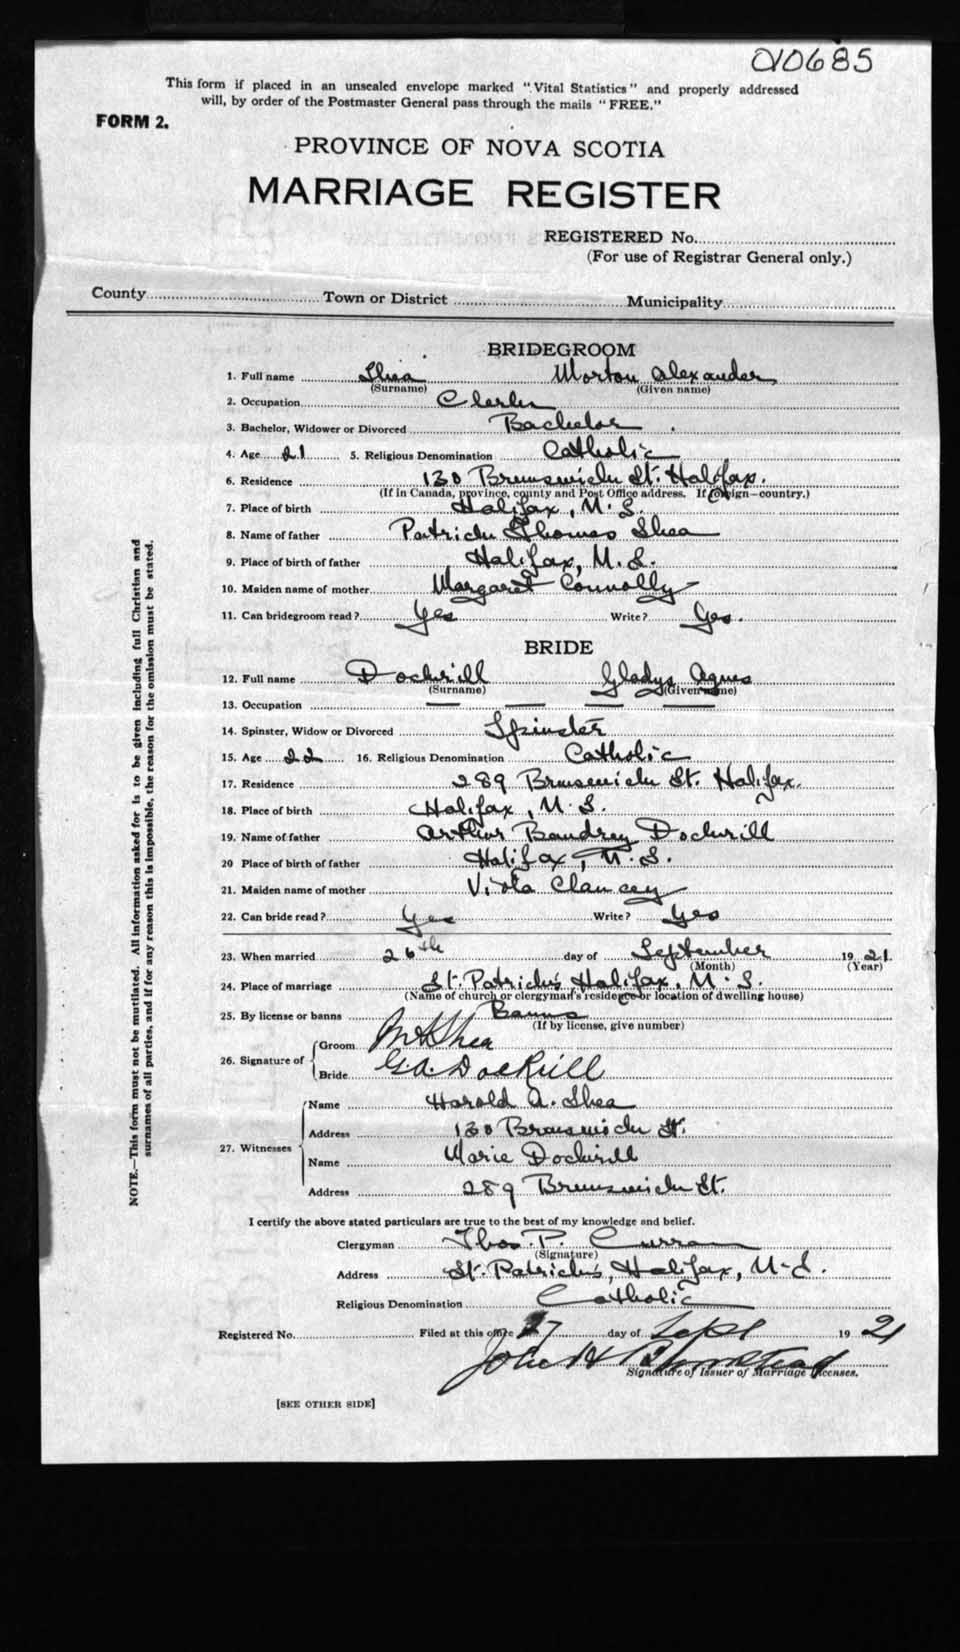 010685
This form if placed in an unsealed envelope marked "Vital Statistics" and properly addressed
will, by order of the Postmaster General pass through the mails "FREE."
FORM 2.
PROVINCE OF NOVA SCOTIA
MARRIAGE REGISTER
REGISTERED No.
(For use of Registrar General only.)
County Town or District Municipality
BRIDEGROOM
1. Full name Shea Morton Alexander
(Surname) (Given name)
2. Occupation Clerk
3. Bachelor, Widower or Divorced Bachelor
4. Age 21 5. Religious Denomination Catholic
6. Residence 130 Brunswick St. Halifax.
(If in Canada, province, county and Post Office address. If foreign—country.)
7. Place of birth Halifax, N.S.
8. Name of father Patrick Thomas Shea
9. Place of birth of father Halifax, N.S.
10. Maiden name of mother Margaret Connolly
11. Can bridegroom read? Yes Write? Yes.
BRIDE
12. Full name Dockrill Gladys Agnes
(Surname) (Given name)
13. Occupation — — — —
14. Spinster, Widow or Divorced Spinster
15. Age 22 16. Religious Denomination Catholic
17. Residence 289 Brunswick St. Halifax.
18. Place of birth Halifax, N.S.
19. Name of father Arthur Dockrill
20 Place of birth of father Halifax, N.S.
21. Maiden name of mother Viola Clancey
22. Can bride read? Yes Write? Yes
23. When married 26th day of September 1921.
(Month) (Year)
24. Place of marriage St. Patrick's, Halifax, N.S.
(Name of church or clergyman's residence or location of dwelling house)
25. By license or banns Banns
(If by license, give number)
26. Signature of
Groom M A Shea
Bride G.A. Dockrill
27. Witnesses
Name Harold A. Shea
Address 130 Brunswick St.
Name Marie Dockrill
Address 289 Brunswick St.
I certify the above stated particulars are true to the best of my knowledge and belief.
Clergyman Thos. P. Curran
(Signature)
Address St. Patrick's, Halifax, N.S.
Religious Denomination Catholic
Registered No. Filed at this office 27 day of Sept 1921
John H
Signature of Issuer of Marriage Licenses.
[SEE OTHER SIDE]
NOTE.—This form must not be mutilated. All information asked for is to be given including full Christian and
surnames of all parties, and if for any reason this is impossible, the reason for the omission must be stated.